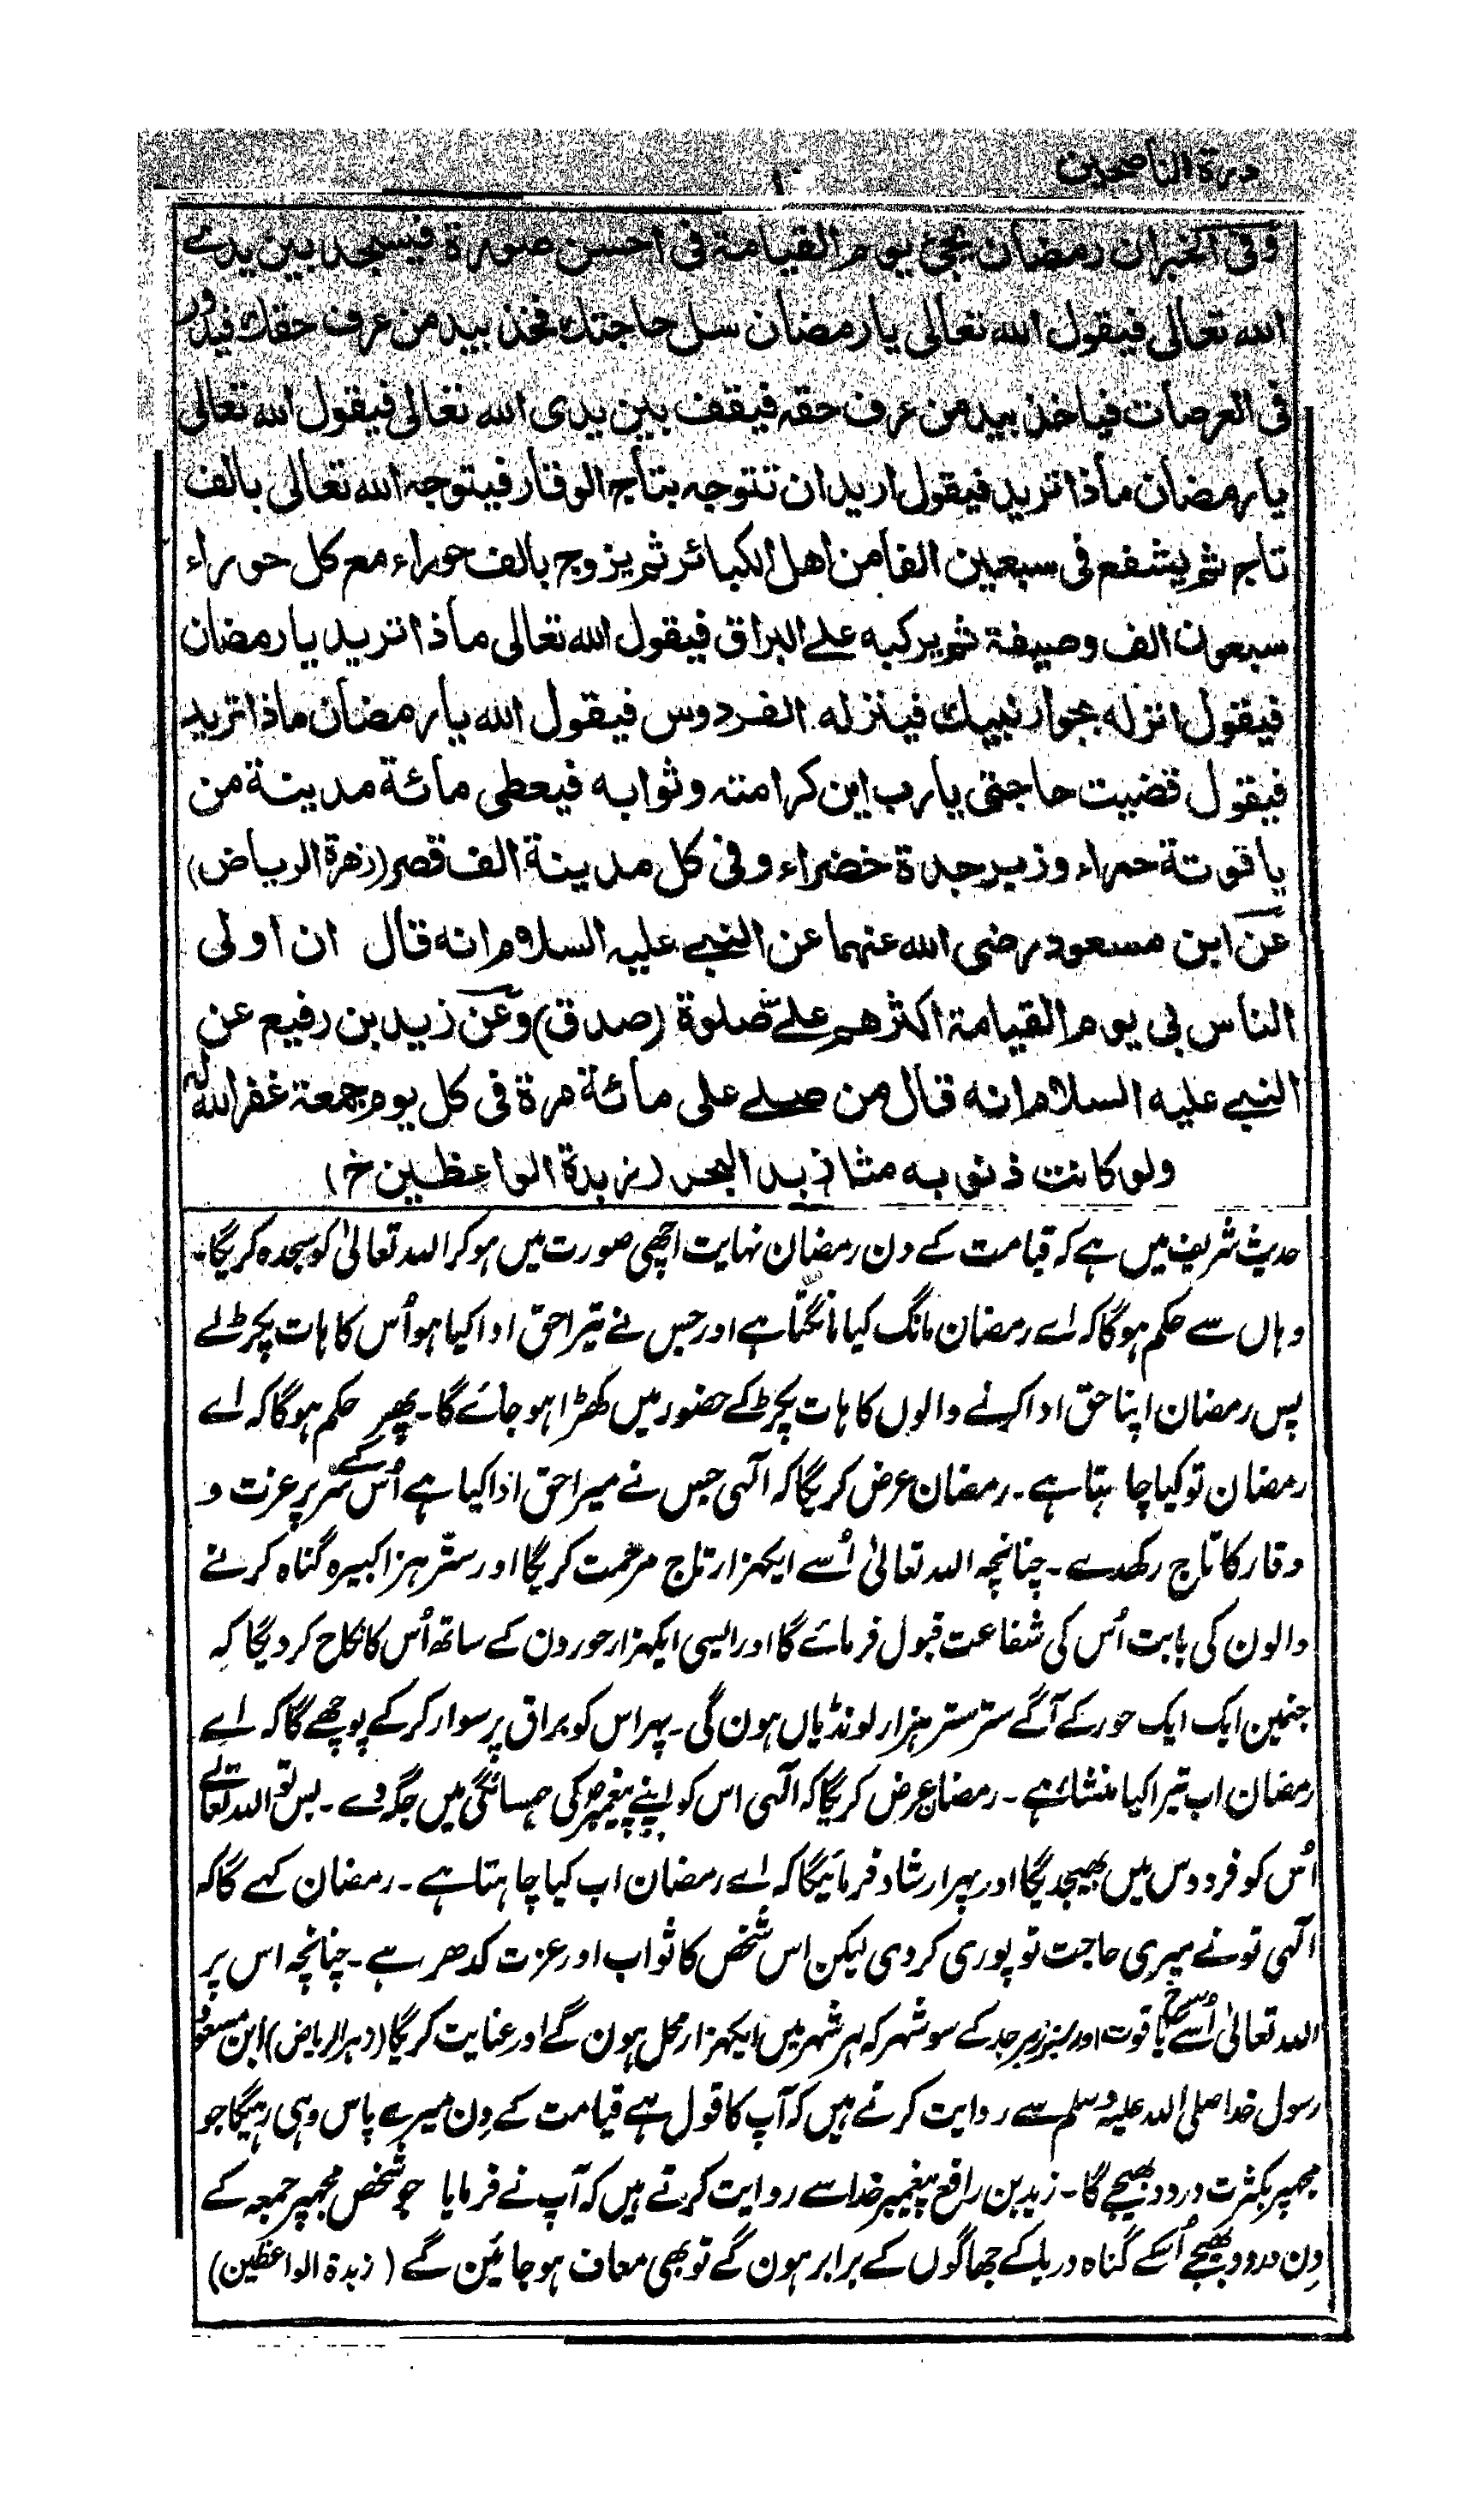 درة الناصحین
۱۰
وفی الخبر ان رمضان یجئ یوم القیامة فی احسن صورة فیسجد بین یدے
الله تعالی فیقول الله تعالی یا رمضان سل حاجتك فخذ بید من عرف حقك فیدور
فی العرصات فیاخذ بید من عرف حقه فیقف بین یدی الله تعالی فیقول الله تعالی
یا رمضان ماذا ترید فیقول ارید ان تتوجه بتاج الوقار فیتوجه الله تعالی بالف
تاج ثم یشفع فی سبعین الفا من اهل الکبائر ثم یزوج بالف حوراء مع کل حوراء
سبعون الف وصیفة ثم یرکبه علے البراق فیقول الله تعالی ماذا ترید یا رمضان
فیقول انزله بجوار نبیك فینزله الفردوس فیقول الله یا رمضان ماذا ترید
فیقول قضیت حاجتی یا رب این کرامته وثوابه فیعطی مائة مدینة من
یاقوتة حمراء وزبرجدة خضراء وفی کل مدینة الف قصر (زهرة الریاض)
عن ابن مسعود رضی الله عنهما عن النبے علیه السلام انه قال ان اولی
الناس بی یوم القیامة اکثرهم علےّ صلوة (صدق) وعن زید بن رفیع عن
النبے علیه السلام انه قال من صلے علی مائة مرة فی کل یوم جمعة غفر الله له
ولو کانت ذنوبه مثل زبد البحر (زبدة الواعظین خ)
حدیث شریف میں ہے کہ قیامت کے دن رمضان نہایت اچھی صورت میں ہوکر اللہ تعالیٰ کو سجدہ کریگا۔
وہاں سے حکم ہوگا کہ اے رمضان مانگ کیا مانگتا ہے اور جس نے تیرا حق ادا کیا ہو اُس کا ہات پکڑ لے
پس رمضان اپنا حق ادا کرنے والوں کا ہات پکڑ کے حضور میں کھڑا ہو جائے گا۔ پھر حکم ہوگا کہ اے
رمضان تو کیا چاہتا ہے۔ رمضان عرض کریگا کہ الٰہی جس نے میرا حق ادا کیا ہے اُس کے سر پر عزت و
وقار کا تاج رکھدے۔ چنانچہ اللہ تعالیٰ اُسے ایکہزار تاج مرحمت کریگا اور ستّر ہزار کبیرہ گناہ کرنے
والون کی بابت اُس کی شفاعت قبول فرمائے گا اور ایسی ایکہزار حورون کے ساتھ اُس کا نکاح کر دیگا کہ
جنمین ایک ایک حور کے آگے ستر ستر ہزار لونڈیاں ہون گی۔ پہر اس کو براق پر سوار کر کے پوچھے گا کہ اے
رمضان اب تیرا کیا منشائ ہے۔ رمضان عرض کریگا کہ الٰہی اس کو اپنے پیغمبر کی ہمسائگی میں جگہ دے۔ پس تو اللہ تعالے
اُس کو فردوس میں بھیجدیگا اور پہر ارشاد فرمائیگا کہ اے رمضان اب کیا چاہتا ہے۔ رمضان کہے گا کہ
الٰہی تو نے میری حاجت تو پوری کر دی لیکن اس شخص کا ثواب اور عزت کدھر ہے۔ چنانچہ اس پر
اللہ تعالیٰ اُسے سرخ یاقوت اور سبز زبرجد کے سو شہر کہ ہر شہر میں ایکہزار محل ہون گے اور عنایت کریگا (زہرالریاض) ابن مسعود
رسول خدا صلی اللہ علیہ وسلم سے روایت کرتے ہیں کہ آپ کا قول ہے قیامت کے دِن میرے پاس وہی رہیگا جو
مجہپر بکثرت درود بھیجے گا۔ زید بن رافع پیغمبر خدا سے روایت کرتے ہیں کہ آپ نے فرمایا جو شخص مجہپر جمعہ کے
دِن درود بھیجے اُسکے گناہ دریا کے جھاگوں کے برابر ہون گے تو بھی معاف ہو جائین گے (زبدة الواعظین)